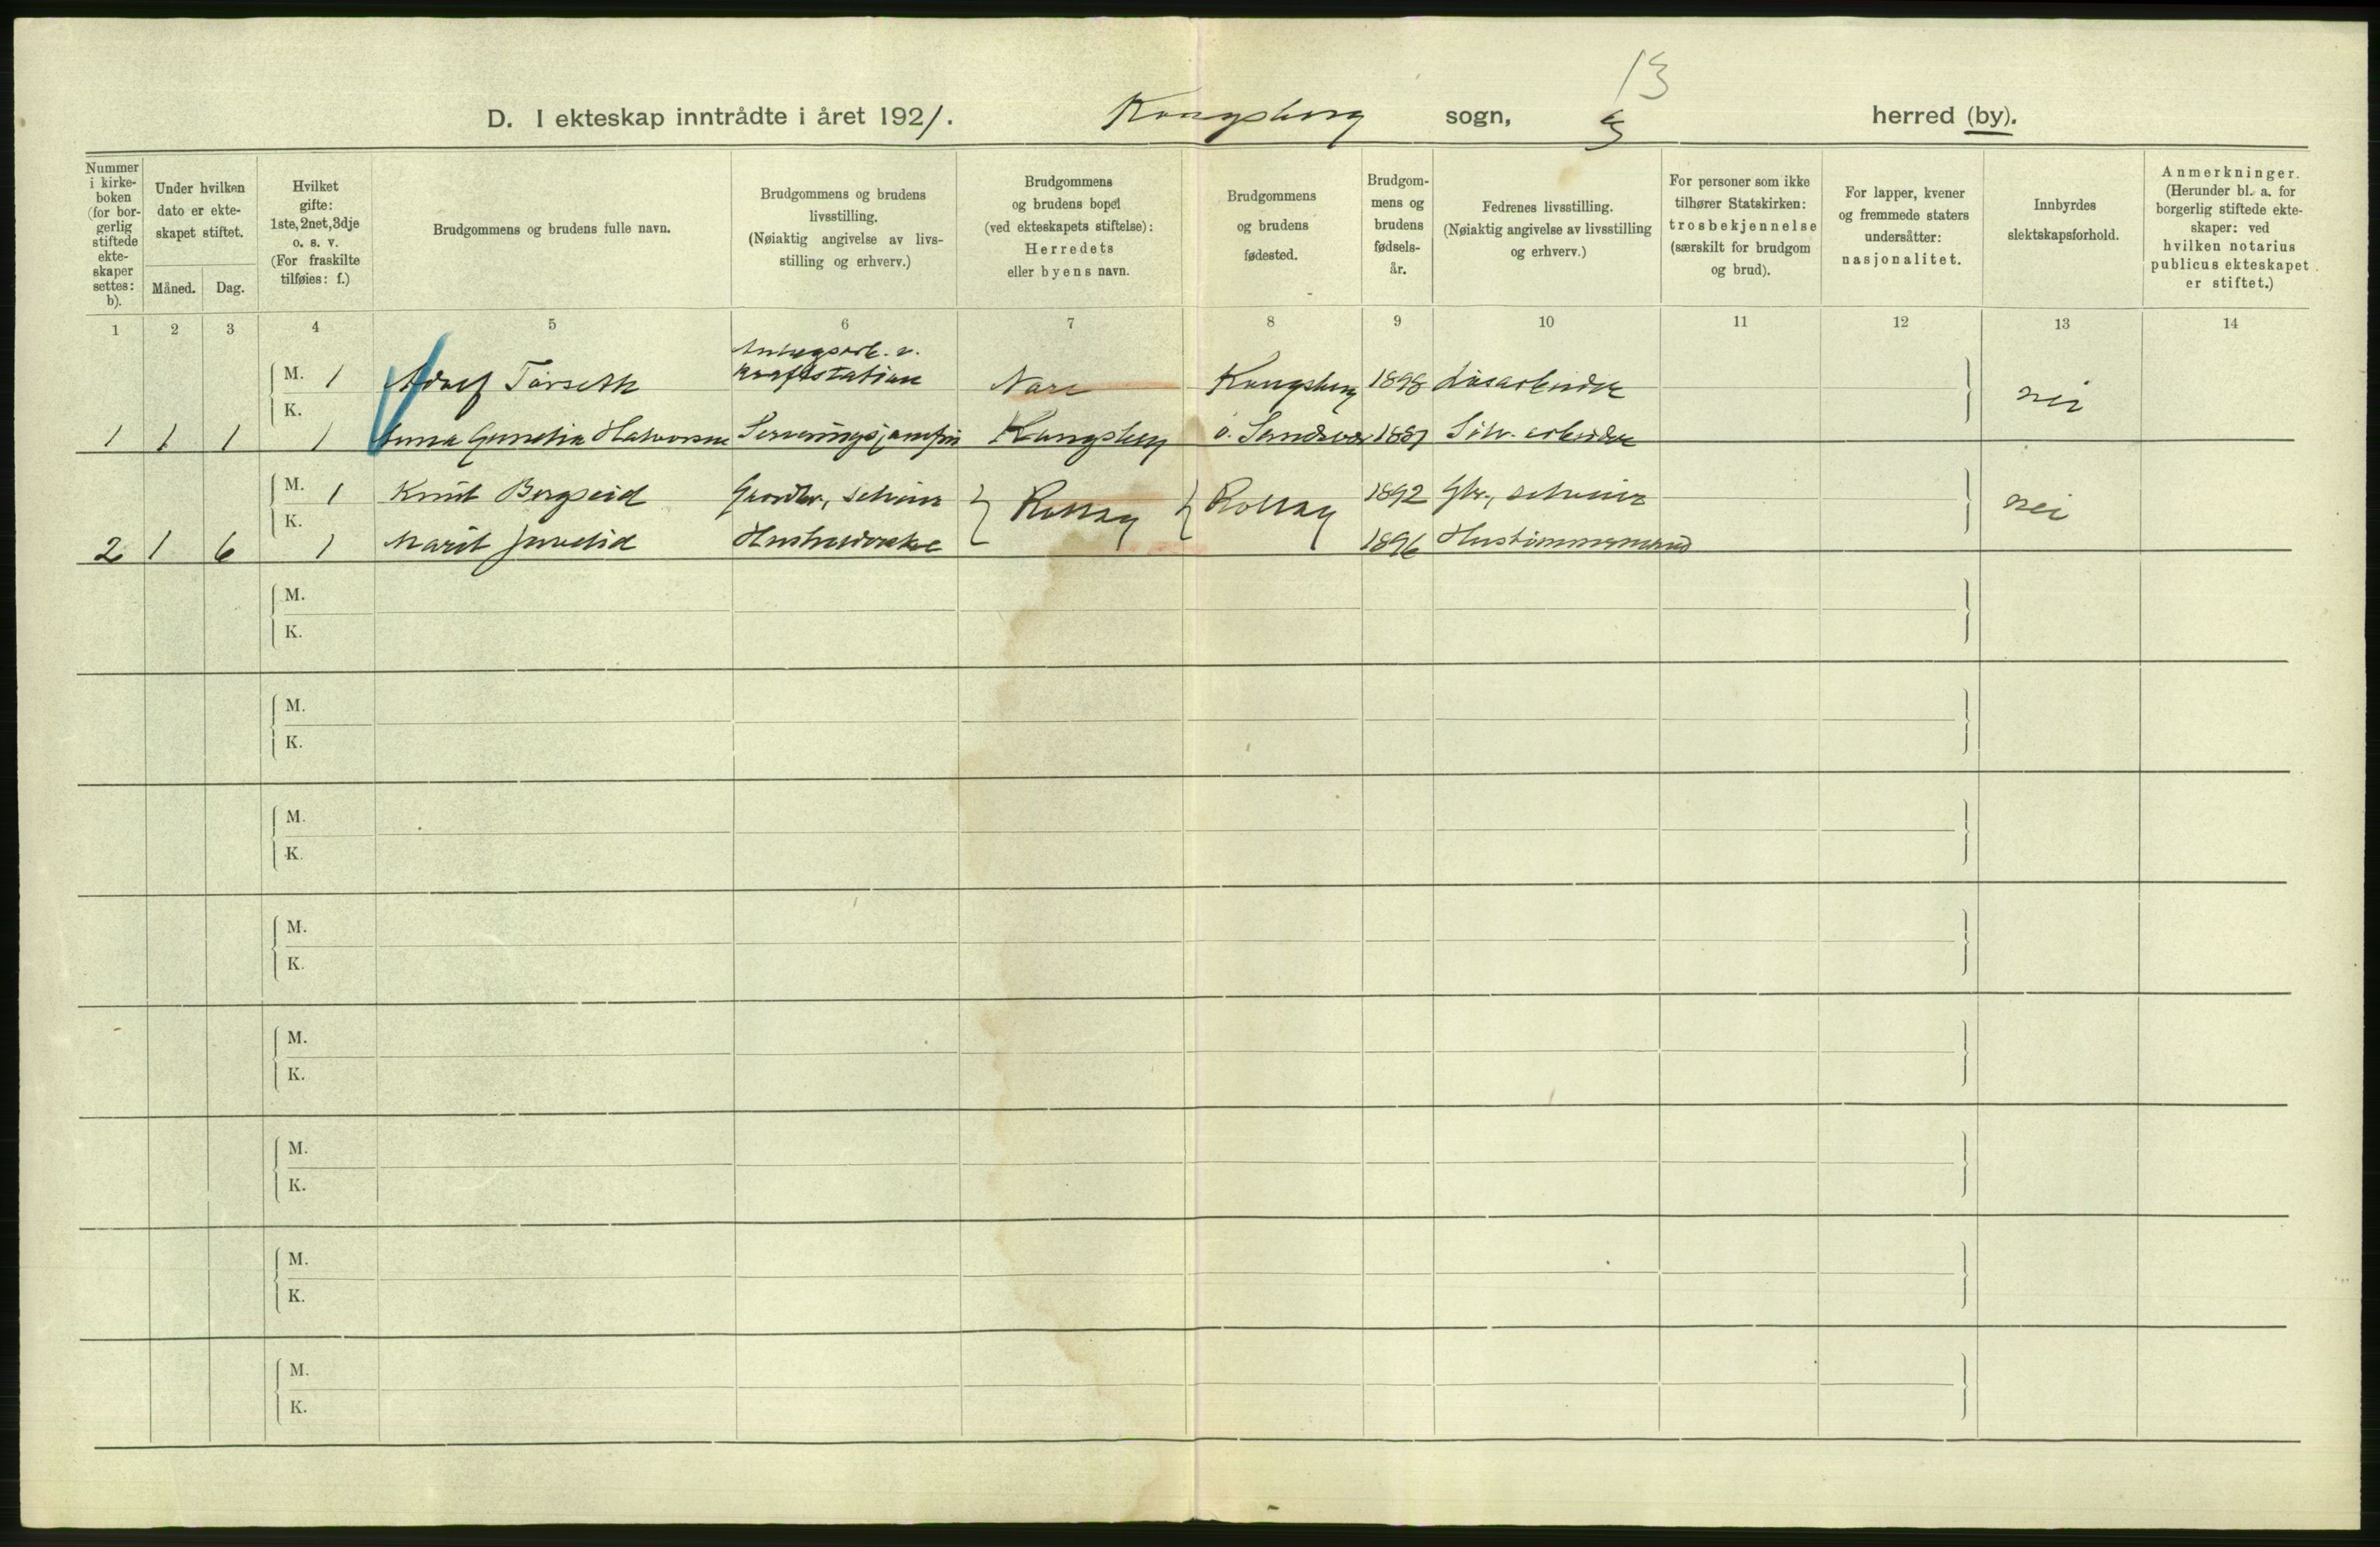 13
D. I ekteskap inntrådte i året 1921. Kongsberg sogn, herred (by).
Nummer i kirke- boken (for bor- gerlig stiftede ekte- skaper settes: b).
Under hvilken dato er ekte- skapet stiftet.
Måned. Dag.
Hvilket gifte: 1ste, 2net, 3dje o. s. v. (For fraskilte tilføies: f.)
Brudgommens og brudens fulle navn.
Brudgommens og brudens livsstilling. (Nøiaktig angivelse av livs- stilling og erhverv.)
Brudgommens og brudens bopel (ved ekteskapets stiftelse): Herredets eller byens navn.
Brudgommens og brudens fødested.
Brudgom- mens og brudens fødsels- år.
Fedrenes livsstilling. (Nøiaktig angivelse av livsstilling og erhverv.)
For personer som ikke tilhører Statskirken: trosbekjennelse (særskilt for brudgom og brud).
For lapper, kvener og fremmede staters undersåtter: nasjonalitet.
Innbyrdes slektskapsforhold.
Anmerkninger. (Herunder bl. a. for borgerlig stiftede ekte- skaper: ved hvilken notarius publicus ekteskapet er stiftet.)
1 2 3 4 5 6 7 8 9 10 11 12 13 14
Anlegsarb. v.
M. 1 Adolf Torseth kraftstation Nore Kongsberg 1898 Løsarbeider nei
K.
1 1 1 1 Anna Gunelia Halvorsen Serveringsjomfru Kongsberg ø. Sandsvær 1887 Sølv. arbeider
M. 1 Knut Bergseid Gaardbr., selveier Rollag Rollag 1892 Gbr., selveier nei
K.
2 1 6 1 Marit Juvelid 1896 Hustømmermand
M.
K.
M.
K.
M.
K.
M.
K.
M.
K.
M.
K.
M.
K.
M.
K.